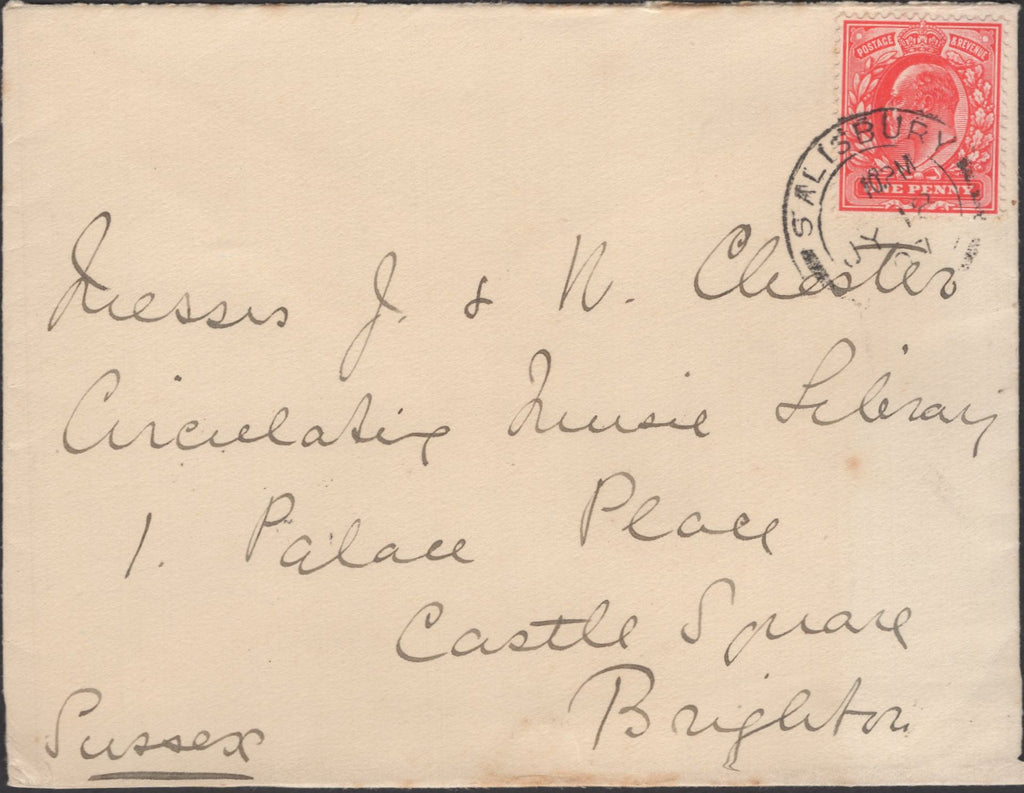 POSTAGE & REVENUE
ONE PENNY
SALISBURY
10 PM
JY 12
07
Messrs J. & N. Chester
Circulating Music Library
1. Palace Place
Castle Square
Brighton
Sussex